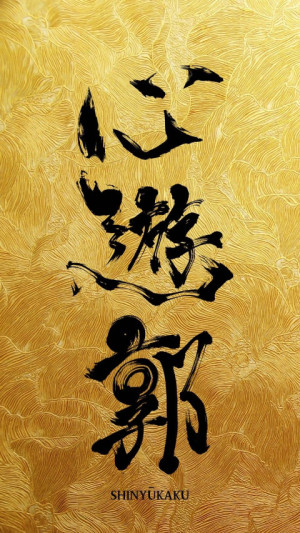 心遊郭
SHINYŪKAKU